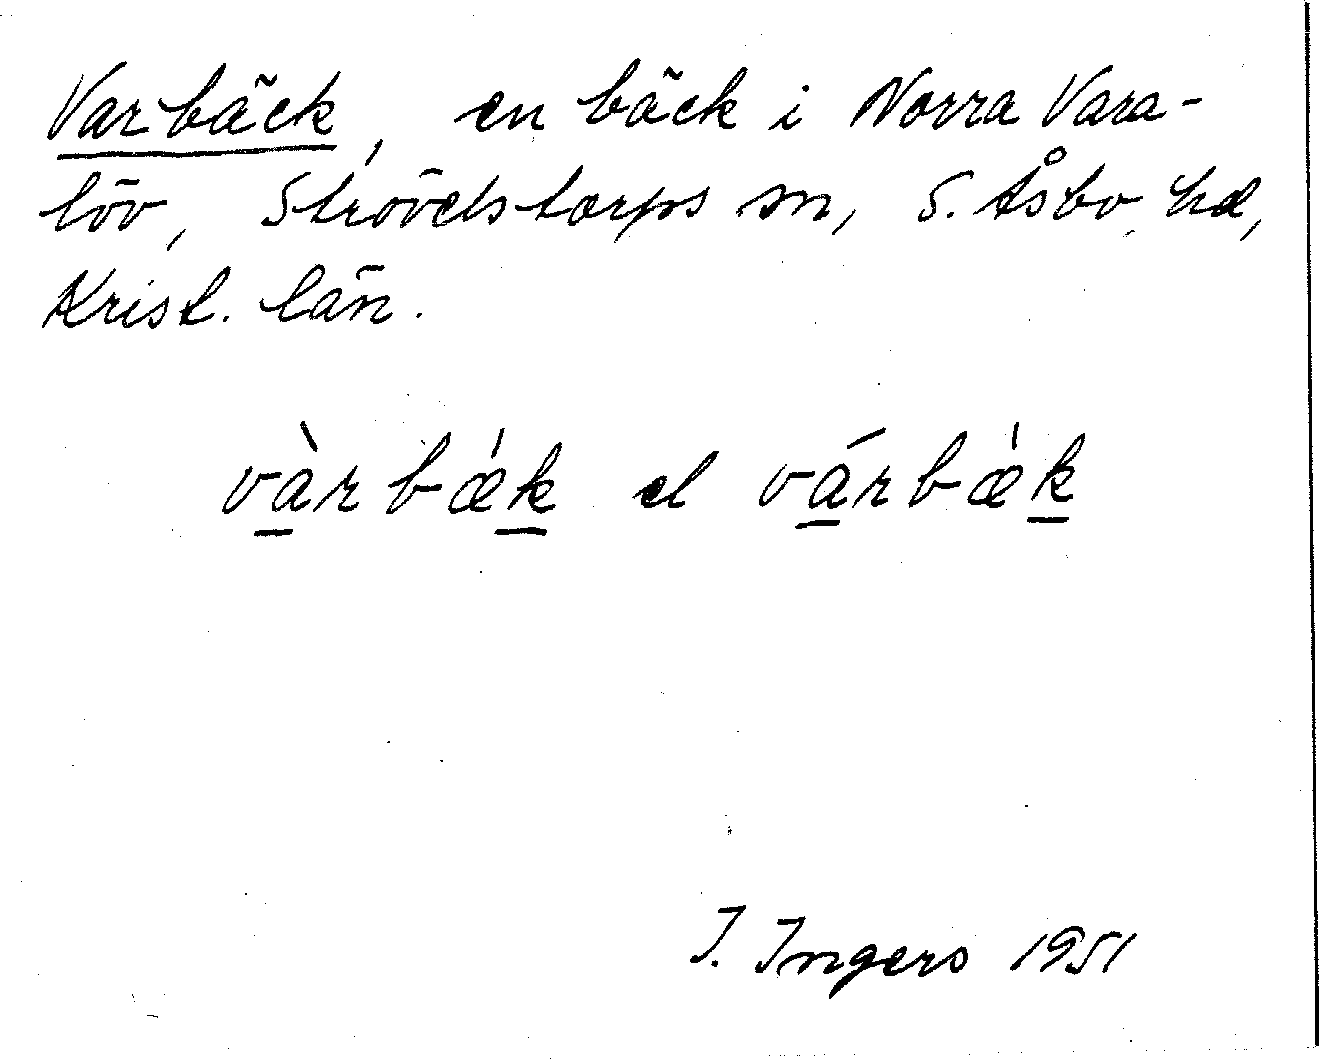 Varbäck, en bäck i Norra Vara-
löv, Strövelstorps sn, S. Åsbo hd,
Krist. län.
và̱rbæ̍ḵ el vá̱rbæ̍ḵ
I. Ingers 1951